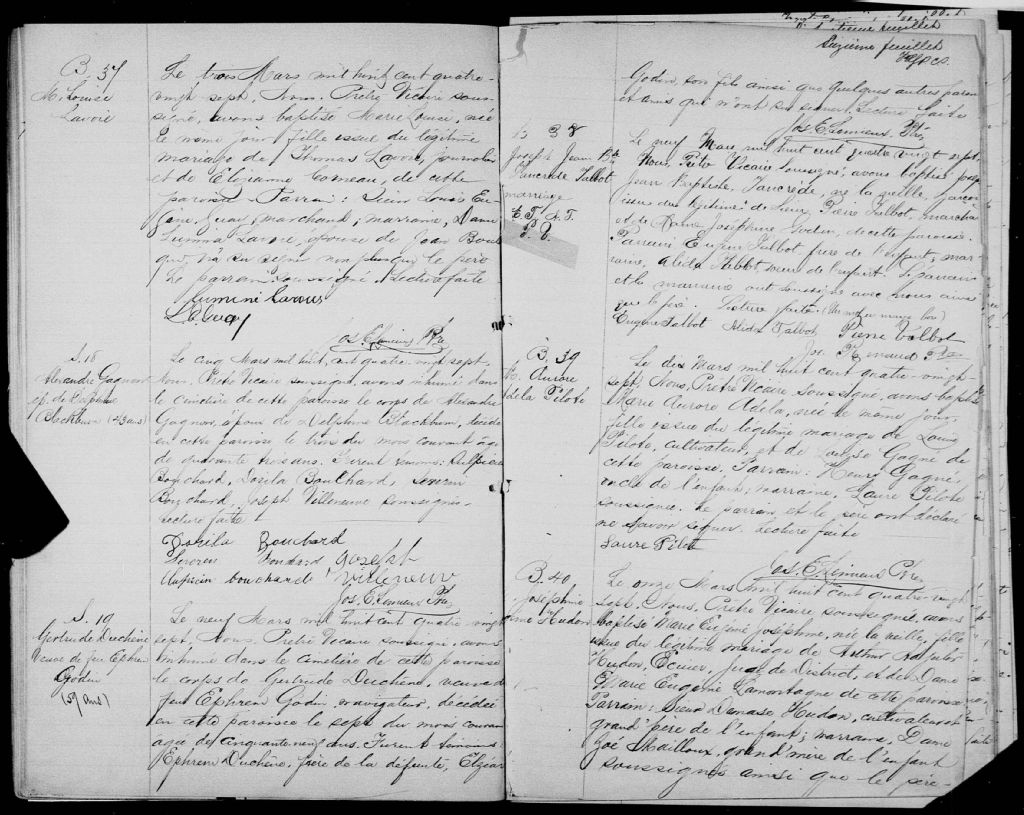 B. 37
M. Louise
Lavoie
Le trois Mars mil huit cent quatre-
vingt sept, Nous, Prêtre Vicaire sous-
signé, avons baptisé Marie Louise, née
le même jour, fille issue du légitime
mariage de Thomas Lavoie, journalier
et de Elzéanne Comeau, de cette
paroisse. Parrain: Sieur Louis Eu-
gène Guay, marchand; marraine, Dame
Lumina Lavoie, épouse de Jean
qui n'a su signer non plus que le père
Le parrain soussigné. Lecture faite
Jos. E. Lemieux Ptre
S. 18
Alexandre Gagnon
ép. de Delphine
Blackburn (43 ans)
Le cinq Mars mil huit cent quatre vingt sept,
Nous, Prêtre Vicaire soussigné, avons inhumé dans
le cimetière de cette paroisse le corps de Alexandre
Gagnon, époux de Delphine Blackburn, décédé
en cette paroisse le trois du mois courant âgé
de quarante trois ans. Furent témoins: Sulpice
Bouchard, Dosila Bouchard, Sévérin
Bouchard, Joseph Villeneuve soussignés.
Lecture faite
Dosila Bouchard
bouchard Joseph
Villeneuve
Jos. E. Lemieux Ptre
S. 19
Gertrude Duchêne
Veuve de feu Ephrem
Godin
(59 ans)
Le neuf Mars mil huit cent quatre vingt
sept, Nous, Prêtre Vicaire soussigné, avons
inhumé dans le cimetière de cette paroisse
le corps de Gertrude Duchêne, veuve de
feu Ephrem Godin, navigateur, décédée
en cette paroisse le sept du mois courant
âgée de cinquante neuf ans. Furent témoins:
Ephrem Duchêne, frère de la défunte, Elzéar
feuillet
Godin, son fils ainsi que quelques autres parents
et amis qui n'ont su signer. Lecture faite
Jos. E. Lemieux Ptre
B. 38
Joseph Jean Bte
Tancrède Talbot
mariage
Le neuf Mars mil huit cent quatre vingt sept,
Nous, Prêtre Vicaire soussigné, avons baptisé Joseph
Jean Baptiste Tancrède, né la veille, garçon
issu du légitime de Sieur Pierre Talbot, marchand
et de Dame Joséphine Godin, de cette paroisse.
Parrain Eugène Talbot frère de l'enfant, mar-
raine, Alida Talbot soeur de l'enfant. Le parrain
et la marraine ont soussigné avec nous ainsi
que le père. Lecture faite.
Eugène Talbot Alida Talbot Pierre Talbot
Jos. E. Lemieux Ptre
B. 39
M. Aurore
Adela Pilote
Le dix Mars mil huit cent quatre-vingt-
sept, Nous, Prêtre Vicaire soussigné, avons baptisé
Marie Aurore Adela, née le même jour,
fille issue du légitime mariage de Louis
Pilote, cultivateur, et de Louise Gagné de
cette paroisse. Parrain: Henri Gagné,
oncle de l'enfant; marraine, Laure Pilote
soussignée. Le parrain et le père ont déclaré
ne savoir signer. Lecture faite
Laure Pilote
Jos. E. Lemieux Ptre
B. 40
Joséphine
Hudon
Le onze Mars mil huit cent quatre-vingt
sept, Nous, Prêtre Vicaire soussigné, avons
baptisé Marie Eugénie Joséphine, née la veille, fille
issue du légitime mariage de Arthur
Hudon, Ecuier, Juge de District, et de Dame
Marie Eugénie Lamontagne de cette paroisse
Parrain: Sieur Damase Hudon, cultivateur et
grand'père de l'enfant; marraine, Dame
Zoé Mailloux, grand'mère de l'enfant
soussignés ainsi que le père.